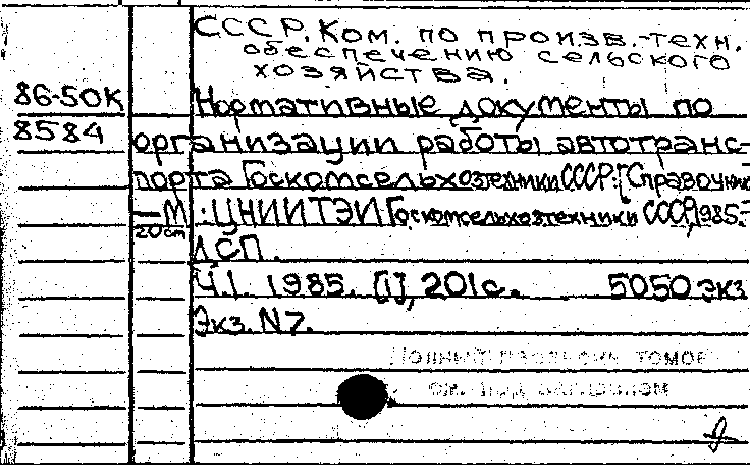 СССР. Ком. по произв.-техн.
обеспечению сельского
хозяйства.
86-50К
8584
Нормативные документы по
организации работы автотранс-
порта Госкомсельхозтехники СССР: [Справочник]
— М.: ЦНИИТЭИ Госкомсельхозтехники СССР, 1985.-
20 cm
ДСП.
Ч.1. 1985. [1], 201 с. 5050 экз
Экз. N7.
томов
см. под